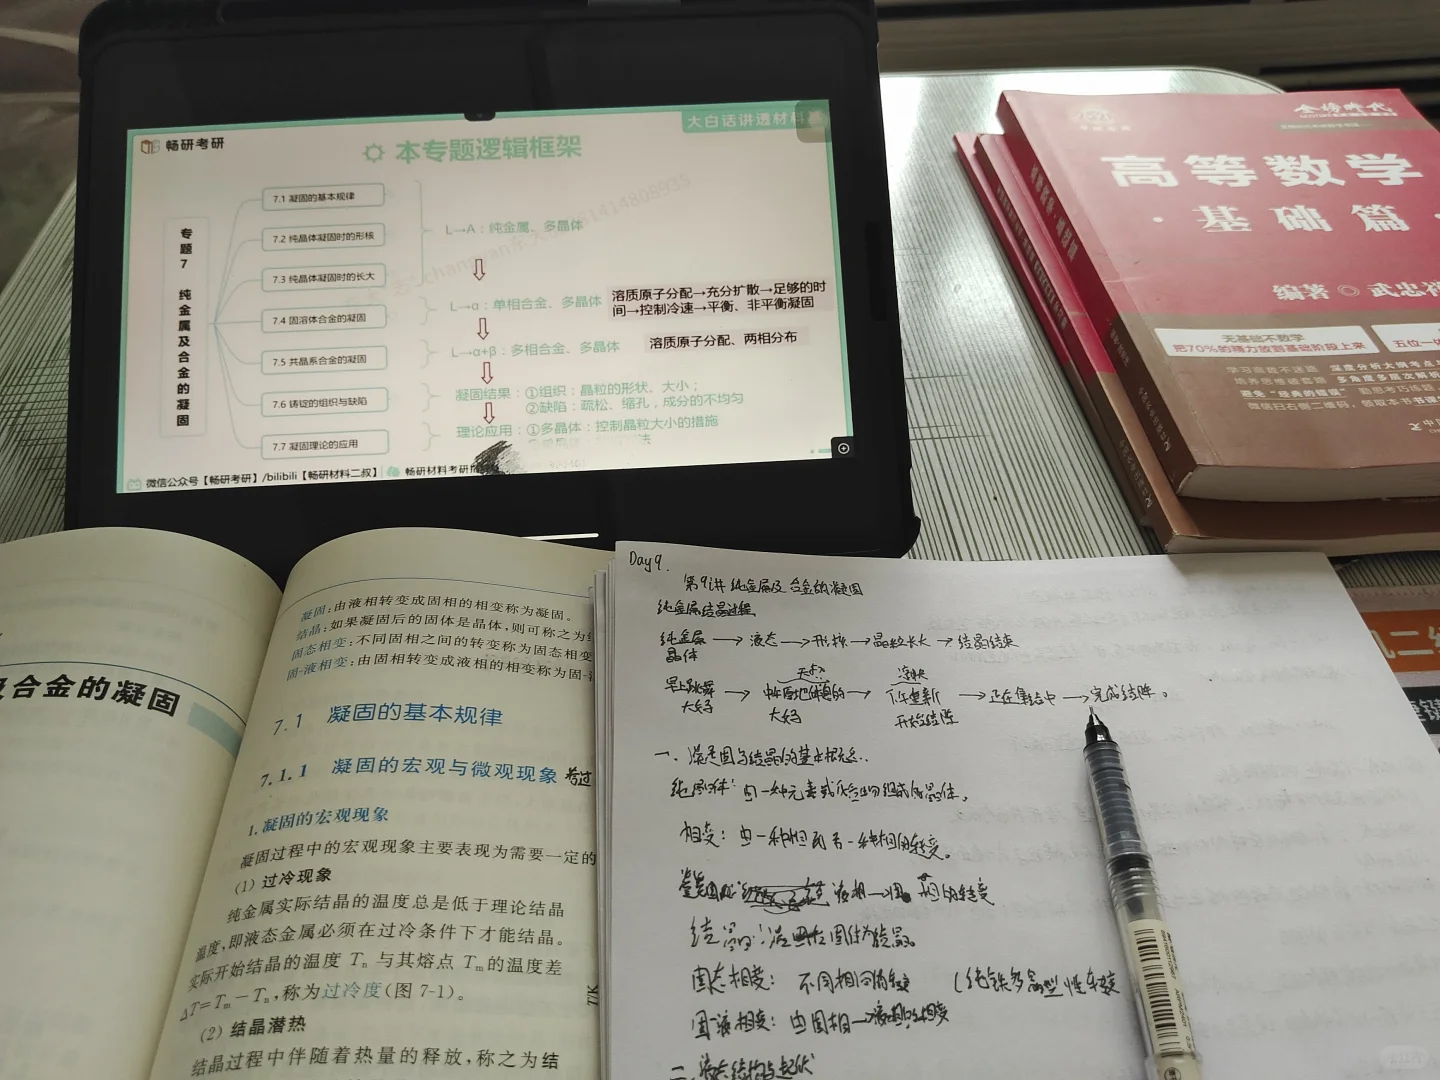 畅研考研
大白话讲透材料
本专题逻辑框架
专题7 纯金属及合金的凝固
7.1 凝固的基本规律
7.2 纯晶体凝固时的形核
7.3 纯晶体凝固时的长大
7.4 固溶体合金的凝固
7.5 共晶系合金的凝固
7.6 铸锭的组织与缺陷
7.7 凝固理论的应用
L→A：纯金属、多晶体
L→α：单相合金、多晶体
溶质原子分配→充分扩散→足够的时
间→控制冷速→平衡、非平衡凝固
L→α+β：多相合金、多晶体
溶质原子分配、两相分布
凝固结果：①组织：晶粒的形状、大小；
②缺陷：疏松、缩孔，成分的不均匀
理论应用：①多晶体：控制晶粒大小的措施
微信公众号【畅研考研】/bilibili【畅研材料二叔】
畅研材料考研
金榜时代
高等数学
·基础篇·
编著 武忠祥
无基础不数学
把70%的精力放到基础阶段上来
五位一体
合金的凝固
凝固：由液相转变成固相的相变称为凝固。
结晶：如果凝固后的固体是晶体，则可称之为结
固态相变：不同固相之间的转变称为固态相变
固-液相变：由固相转变成液相的相变称为固-
7.1 凝固的基本规律
7.1.1 凝固的宏观与微观现象
1.凝固的宏观现象
凝固过程中的宏观现象主要表现为需要一定的
（1）过冷现象
纯金属实际结晶的温度总是低于理论结晶
温度，即液态金属必须在过冷条件下才能结晶。
实际开始结晶的温度 Tn 与其熔点 Tm 的温度差
ΔT=Tm－Tn，称为过冷度（图 7-1）。
（2）结晶潜热
结晶过程中伴随着热量的释放，称之为结
Day9.
第9讲 纯金属及合金的凝固
纯金属结晶过程
纯金属晶体 → 液态 → 形核 → 晶粒长大 → 结晶结束
早上跳舞大妈 → 中午 大妈 → 下午重新开始结阵 → 正在集结中 → 完成结阵。
一、凝固与结晶的基本概念.
纯晶体：由一种元素或化合物组成的晶体。
相变：由一种相到另一种相的转变。
液相→固相的转变
结晶：凝固后固体为结晶
固态相变：不同相间的转变 (纯铁多晶型性转变
固液相变：由固相→液相的相变
二、液态结构与起伏